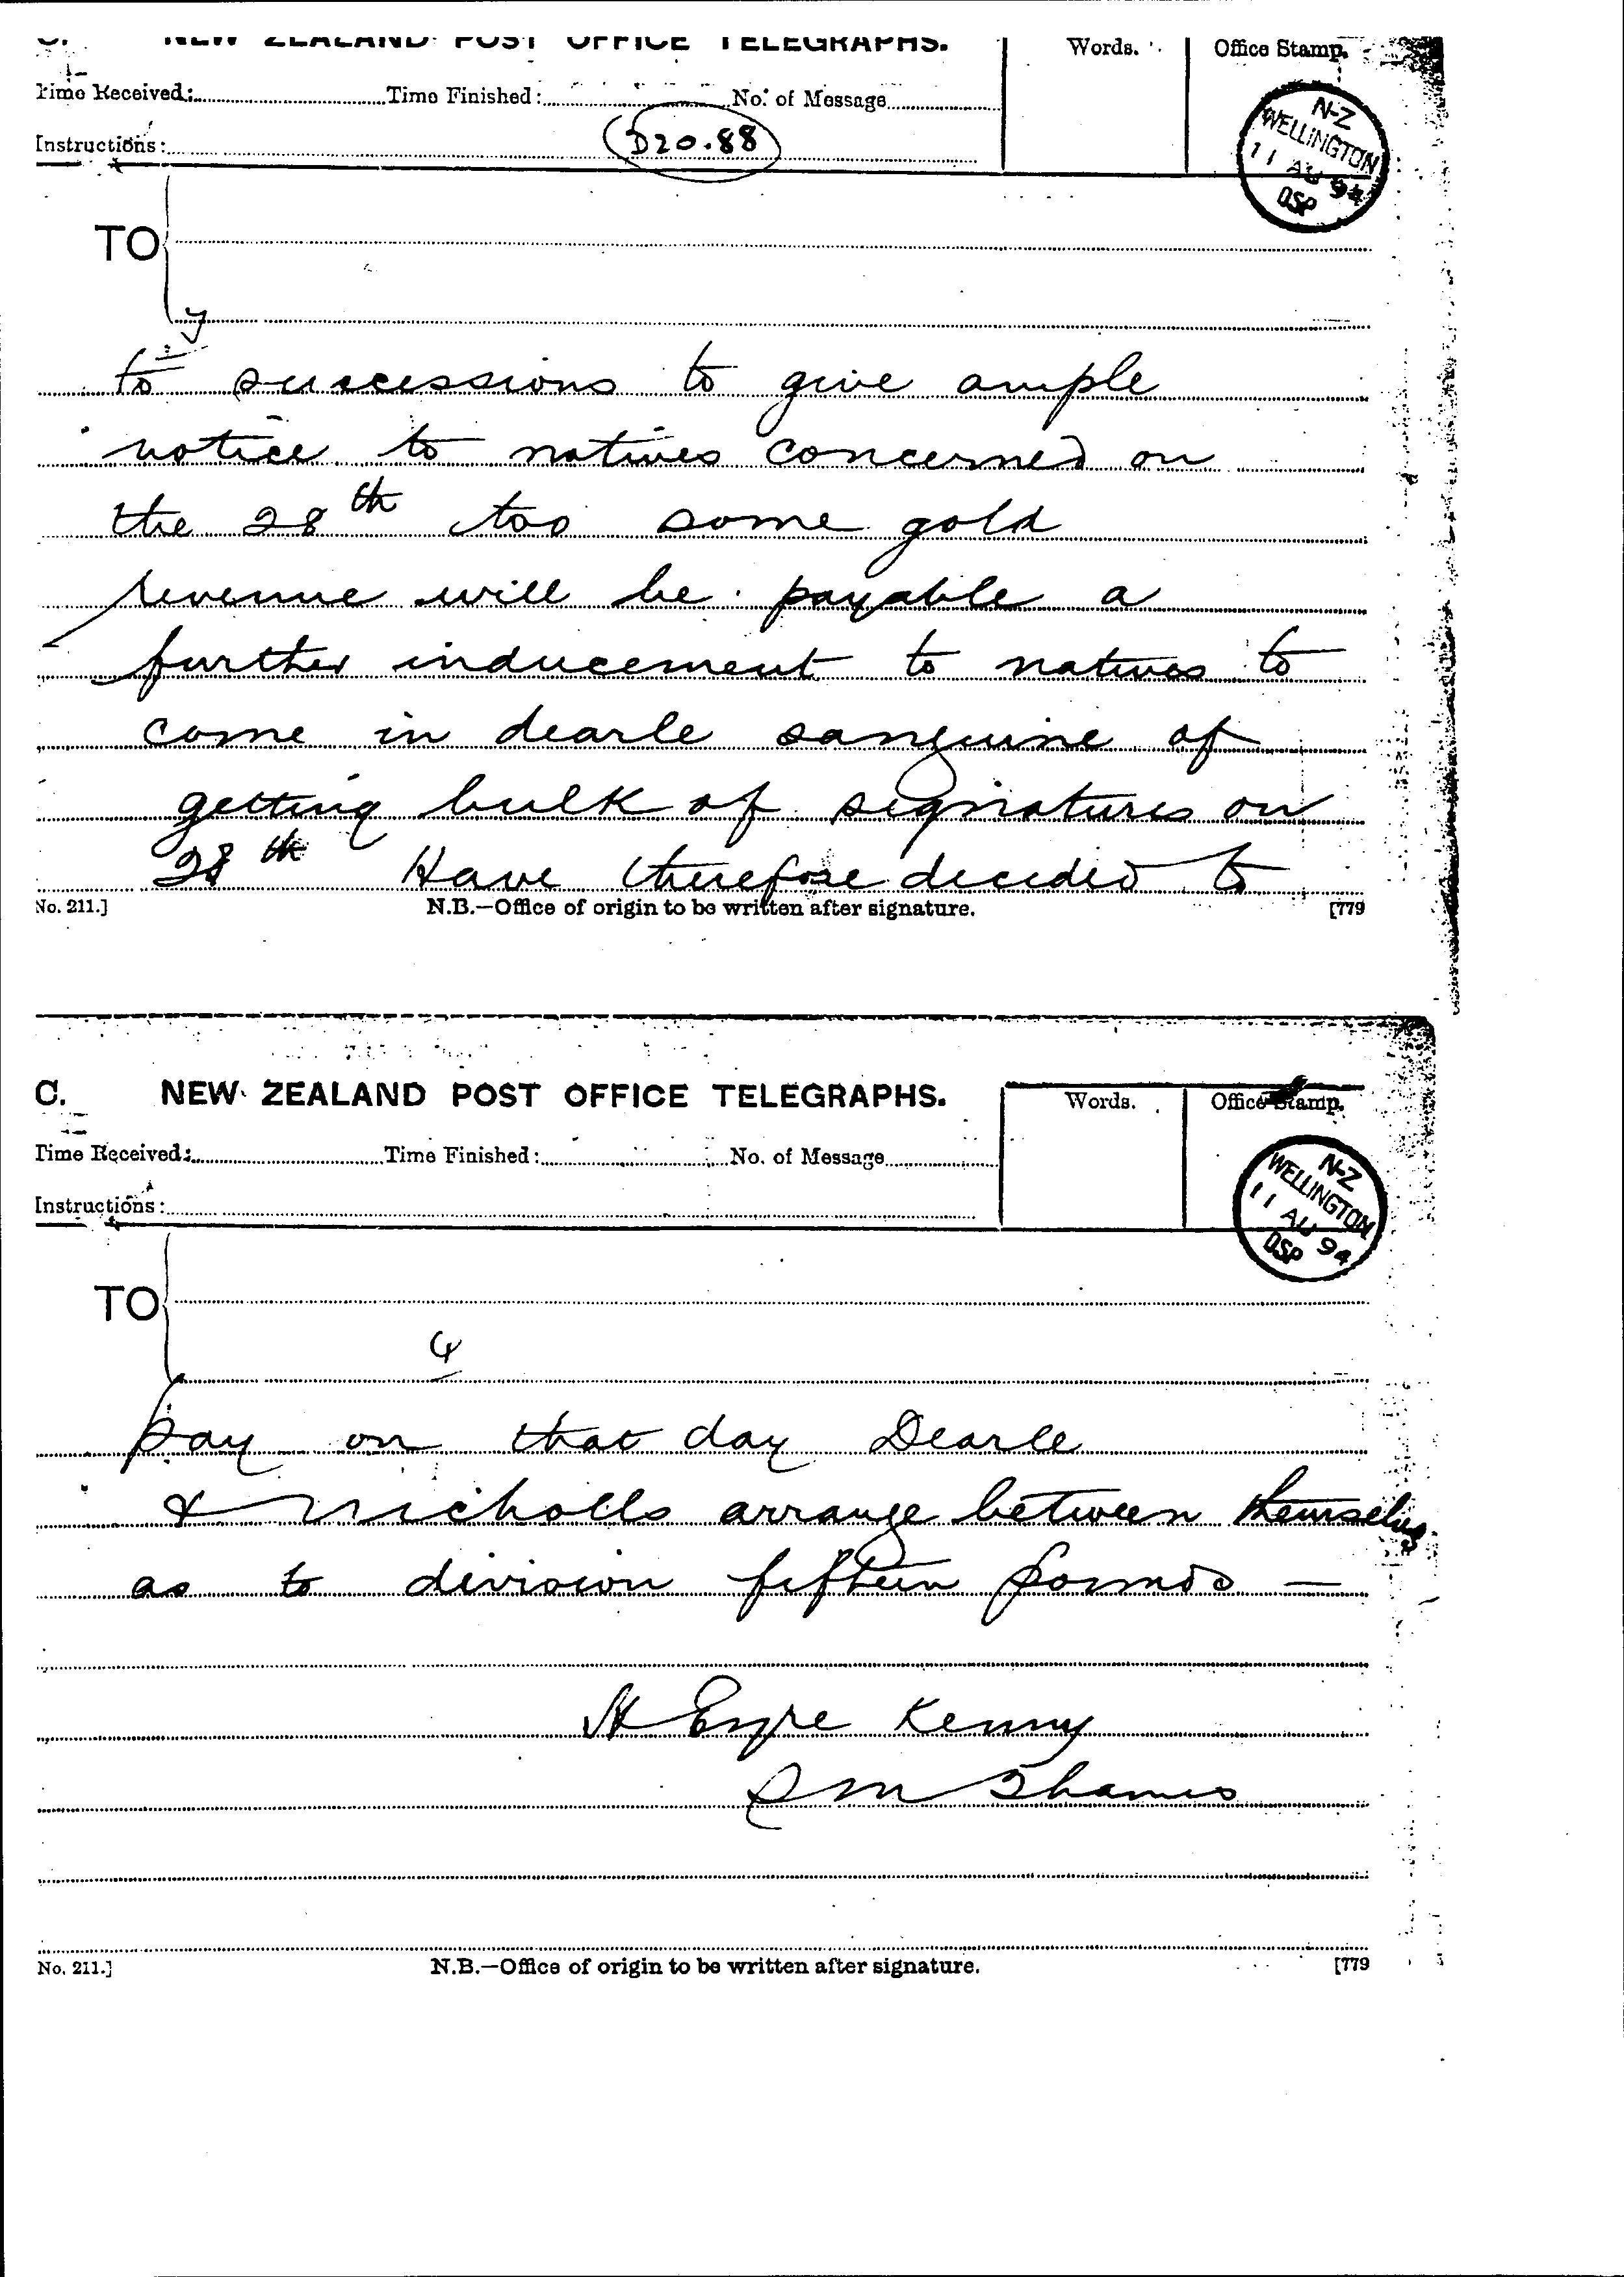 C. NEW ZEALAND POST OFFICE TELEGRAPHS.
Words.
Office Stamp.
Time Received: Time Finished: No. of Message
Instructions:
D20.88
N-Z
WELLINGTON
11 AU 94
OSP
TO
to successions to give ample
notice to natives concerned on
the 28th too some gold
revenue will be payable a
further inducement to natives to
come in dearle sanguine of
getting bulk of signatures on
28th Have therefore decided to
No. 211.] N.B.—Office of origin to be written after signature. [779
C. NEW ZEALAND POST OFFICE TELEGRAPHS.
Words.
Office Stamp.
Time Received: Time Finished: No. of Message
Instructions:
N-Z
WELLINGTON
11 AU 94
OSP
TO
4
pay on that day Dearle
& Nicholls arrange between themselves
as to division fifteen pounds —
H Eyre Kenny
S M Thames
No. 211.] N.B.—Office of origin to be written after signature. [779